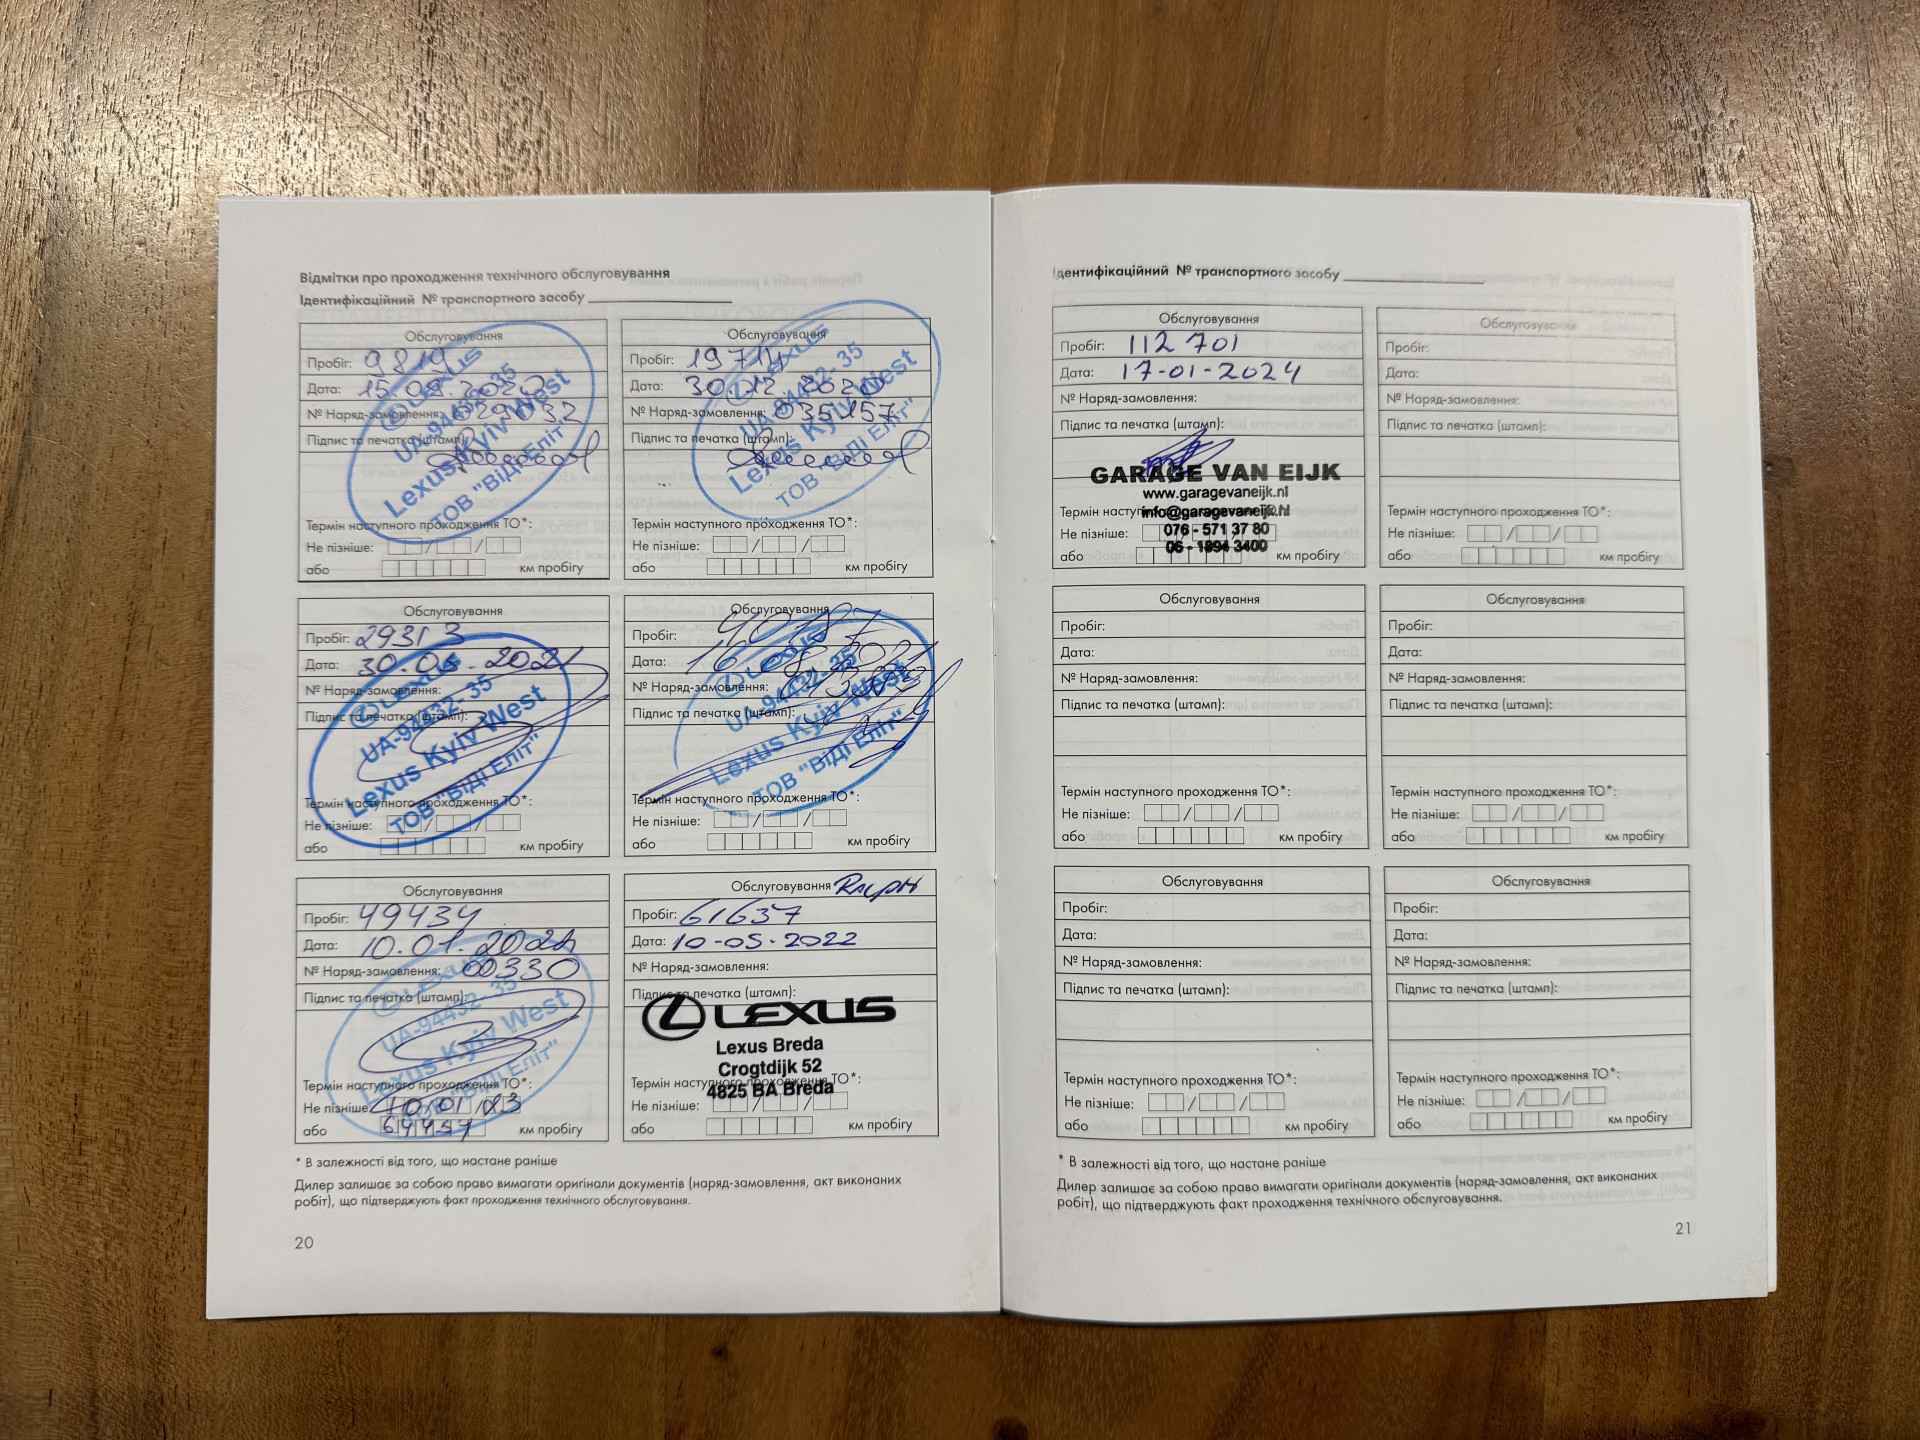 Відмітки про проходження технічного обслуговування
Ідентифікаційний № транспортного засобу
Обслуговування
Пробіг: 9819
Дата: 15.09.2020
№ Наряд-замовлення: 029032
Підпис та печатка (штамп):
LEXUS
UA-94432-35
Lexus Kyiv West
ТОВ "ВІДІ Еліт"
Термін наступного проходження ТО*:
Не пізніше: / /
або км пробігу
Обслуговування
Пробіг: 19714
Дата: 30.12.2020
№ Наряд-замовлення: 035157
Підпис та печатка (штамп):
LEXUS
UA-94432-35
Lexus Kyiv West
ТОВ "ВІДІ Еліт"
Термін наступного проходження ТО*:
Не пізніше: / /
або км пробігу
Обслуговування
Пробіг: 29313
Дата: 30.04.2021
№ Наряд-замовлення:
Підпис та печатка (штамп):
LEXUS
UA-94432-35
Lexus Kyiv West
ТОВ "ВІДІ Еліт"
Термін наступного проходження ТО*:
Не пізніше: / /
або км пробігу
Обслуговування
Пробіг: 40187
Дата: 16.08.2021
№ Наряд-замовлення:
Підпис та печатка (штамп):
LEXUS
UA-94432-35
Lexus Kyiv West
ТОВ "ВІДІ Еліт"
Термін наступного проходження ТО*:
Не пізніше: / /
або км пробігу
Обслуговування
Пробіг: 49434
Дата: 10.01.2022
№ Наряд-замовлення: 00330
Підпис та печатка (штамп):
LEXUS
UA-94432-35
Lexus Kyiv West
ТОВ "ВІДІ Еліт"
Термін наступного проходження ТО*:
Не пізніше: 10/01/23
або км пробігу
Обслуговування Ralph
Пробіг: 61637
Дата: 10-05-2022
№ Наряд-замовлення:
Підпис та печатка (штамп):
LEXUS
Lexus Breda
Crogtdijk 52
4825 BA Breda
Термін наступного проходження ТО*:
Не пізніше: / /
або км пробігу
* В залежності від того, що настане раніше
Дилер залишає за собою право вимагати оригінали документів (наряд-замовлення, акт виконаних
робіт), що підтверджують факт проходження технічного обслуговування.
20
Ідентифікаційний № транспортного засобу
Обслуговування
Пробіг: 112 701
Дата: 17-01-2024
№ Наряд-замовлення:
Підпис та печатка (штамп):
GARAGE VAN EIJK
www.garagevaneijk.nl
info@garagevaneijk.nl
076 - 571 37 80
06 - 1894 3400
Термін наступного проходження ТО*:
Не пізніше: / /
або км пробігу
Обслуговування
Пробіг:
Дата:
№ Наряд-замовлення:
Підпис та печатка (штамп):
Термін наступного проходження ТО*:
Не пізніше: / /
або км пробігу
Обслуговування
Пробіг:
Дата:
№ Наряд-замовлення:
Підпис та печатка (штамп):
Термін наступного проходження ТО*:
Не пізніше: / /
або км пробігу
Обслуговування
Пробіг:
Дата:
№ Наряд-замовлення:
Підпис та печатка (штамп):
Термін наступного проходження ТО*:
Не пізніше: / /
або км пробігу
Обслуговування
Пробіг:
Дата:
№ Наряд-замовлення:
Підпис та печатка (штамп):
Термін наступного проходження ТО*:
Не пізніше: / /
або км пробігу
Обслуговування
Пробіг:
Дата:
№ Наряд-замовлення:
Підпис та печатка (штамп):
Термін наступного проходження ТО*:
Не пізніше: / /
або км пробігу
* В залежності від того, що настане раніше
Дилер залишає за собою право вимагати оригінали документів (наряд-замовлення, акт виконаних
робіт), що підтверджують факт проходження технічного обслуговування.
21